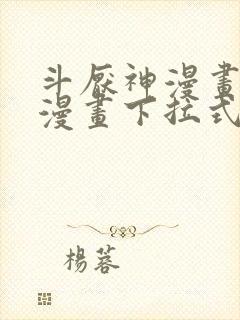 斗厭神漫畫
漫畫下拉式
楊蓉